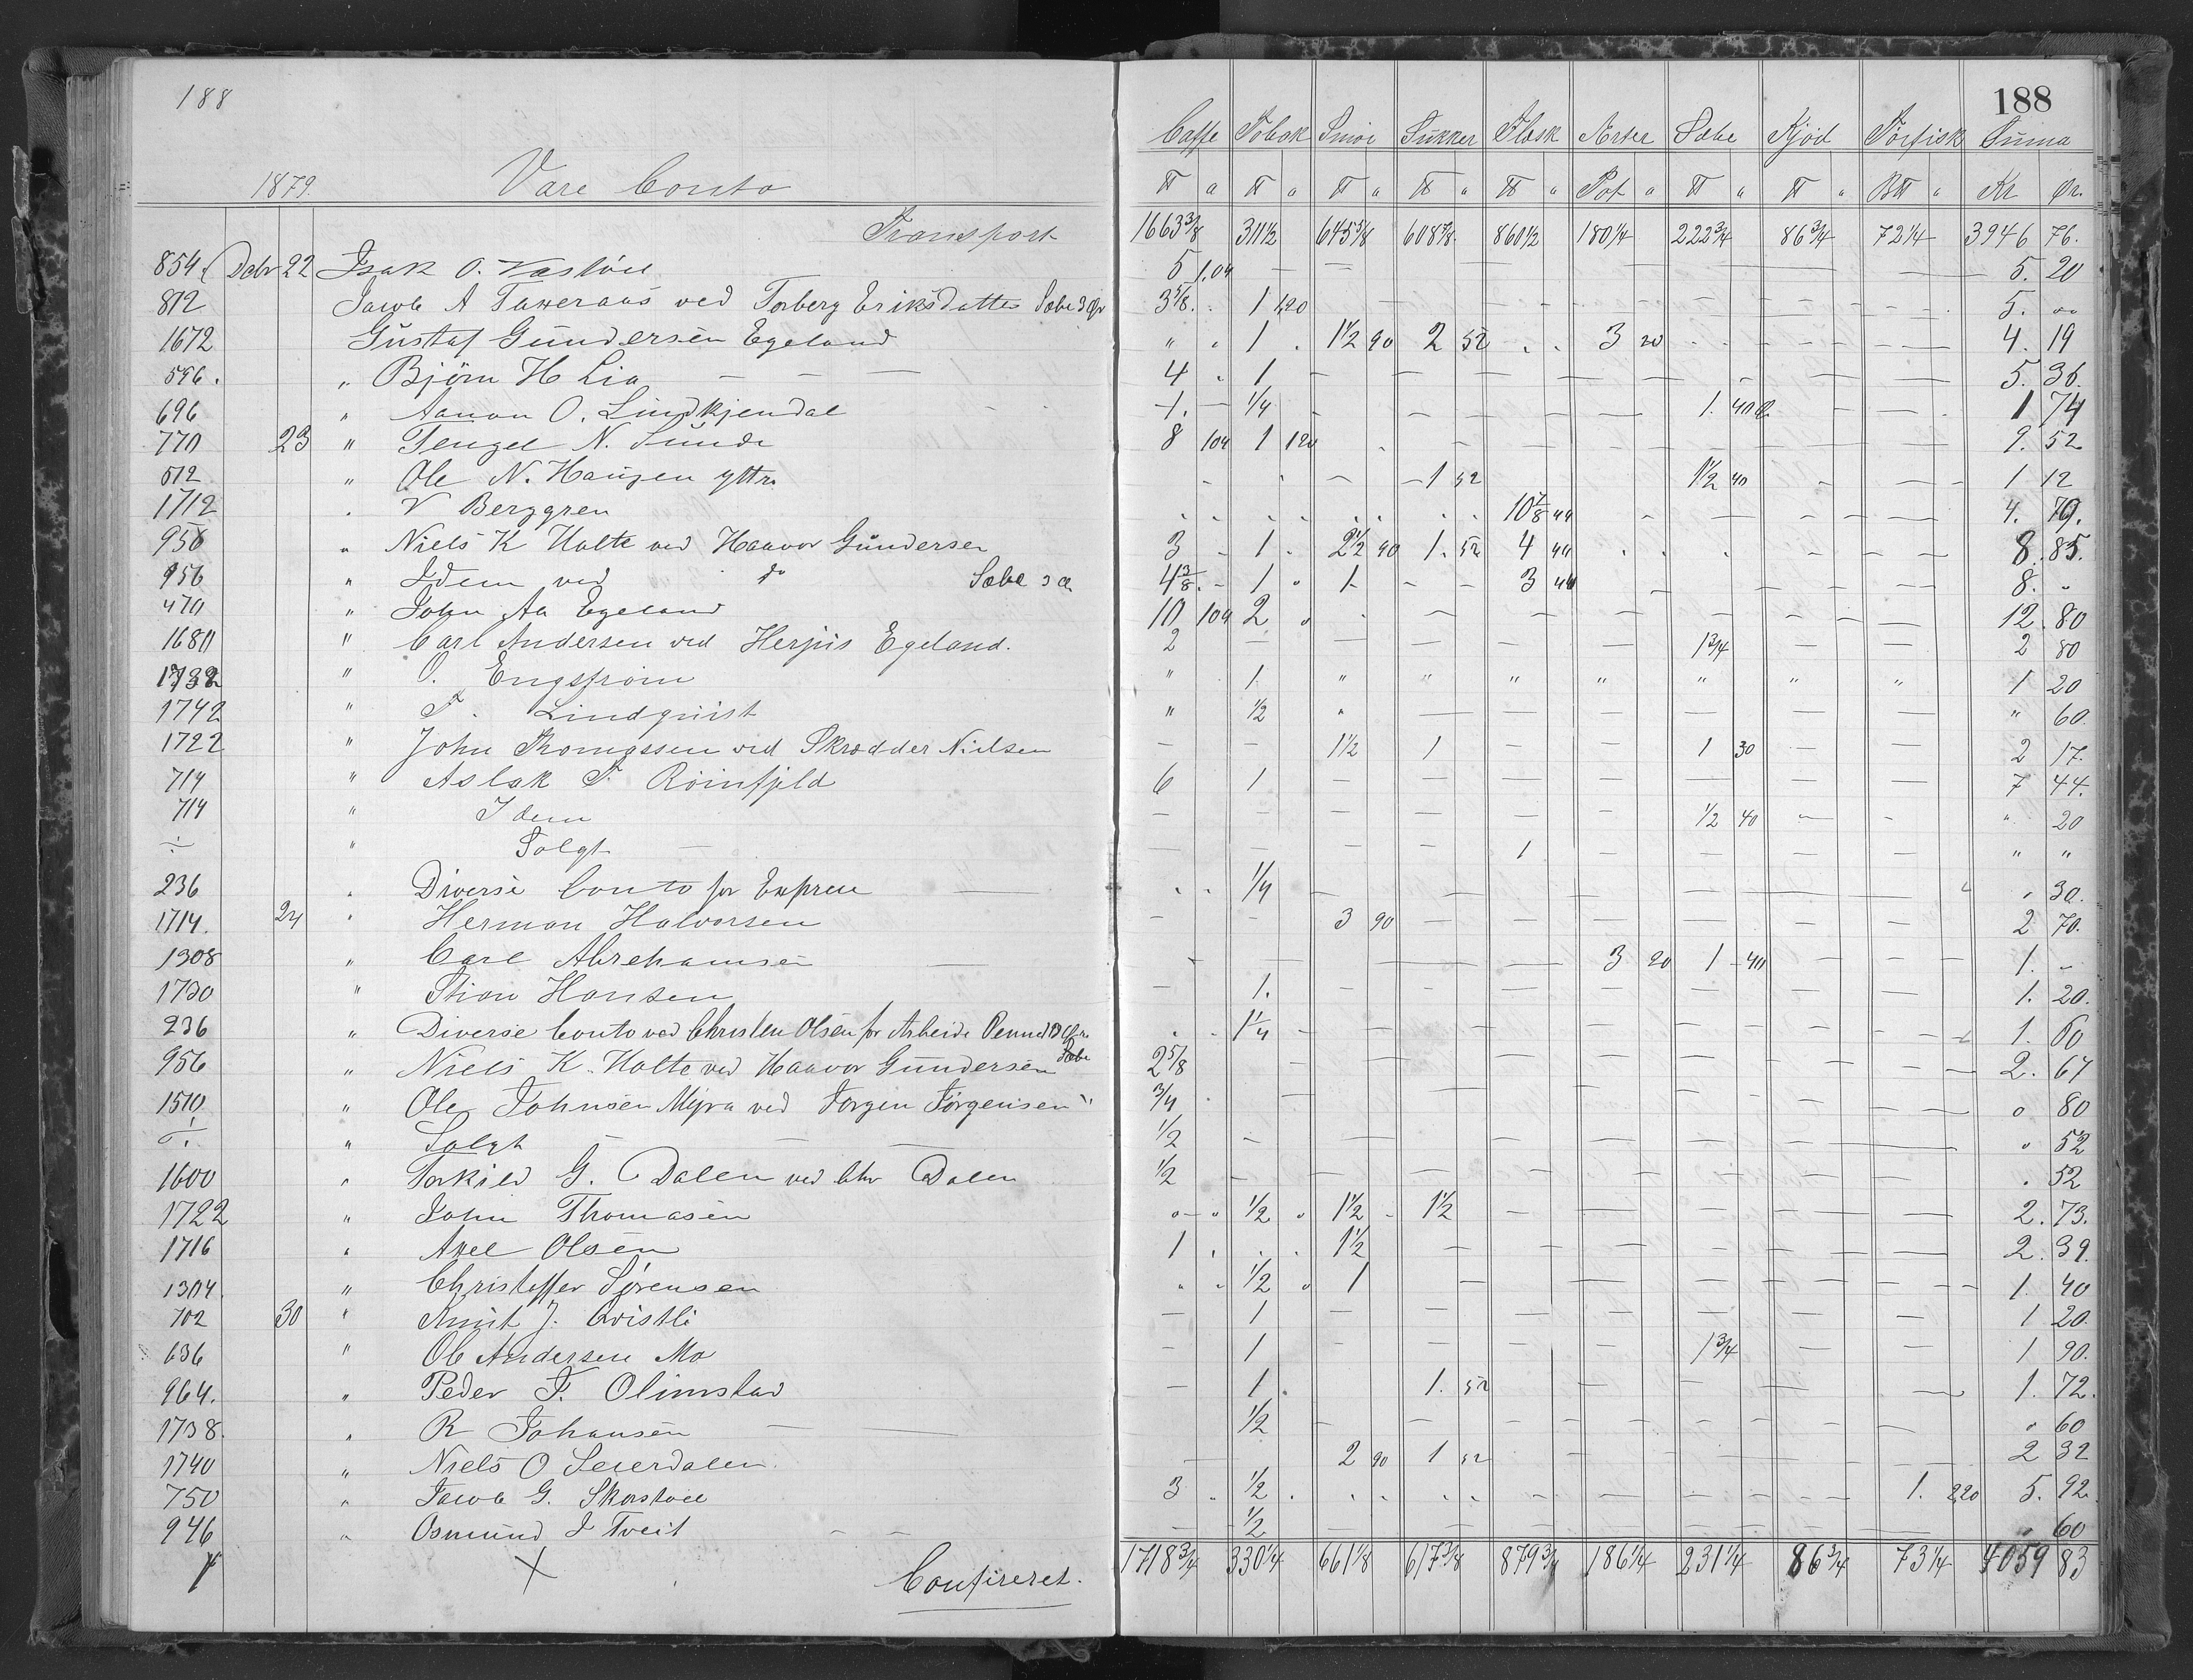 188
188
Caffe Tobak Smør Sukker Flesk Ærter Sæbe Kjød Tørfisk Summa
1879 Vare Conto ℔ a ℔ " ℔ " ℔ " ℔ " Pot " ℔ " ℔ " B℔ " Kr Ør.
Transport 1663 3/8 311 1/2 645 5/8 608 7/8 860 1/2 180 1/4 222 3/4 86 3/4 72 1/4 3946 76.
854 Debr 22 Isak O. 5 1,04 — — — — — — — — 5. 20
812 Jacob A ved Torberg Eriksdatter Sæbe 3 3 5/8 . 1 1,20 — — — — — — — 5. „
1672 Gustaf Gundersen Egeland " " 1 . 1 1/2 90 2 52 . . 3 20 — — — 4. 19
596. " Bjørn H Lia — — — 4 " 1 — — — — — — — 5. 36.
696 " Aanon O. Lindkjendal 1. — 1/4 — — — — 1. 40 — — 1 74
770 23 " Tengel N. Sunde 8 104 1 120 — — — — — — — 9. 52
512 " Ole N. Haugen yttre — — — 1 52 — — 1 1/2 40 — — 1 12
1712 . V Berggren . . . . . . . . 10 7/8 44 — — — — 4. 79.
956 " Niels K Holte ved Haavor Gundersen 3 — 1 . 2 1/2 90 1. 52 4 44 . . . — — 8. 85.
956 " Idem ved do Sæbe 3 4 3/8 . — 1 " 1 — — — 3 44 — — — — 8. "
470 " John Aa Egeland 10 104 2 " — — — — — — — 12. 80
1680 " Carl Andersen ved Egeland. 2 — — — — — 1 3/4 — — 2 80
1732 " O. Engstrøm " 1 " " " " " " " 1 20
1742 " F. Lindquist " 1/2 " — — — — — — " 60.
1722 " John Thomassen ved Skrædder Nielsen — — 1 1/2 1 — — 1 30 — — 2 17.
714 " Aslak T. Roinfjeld 6 1 — — — — — — — 7 44.
714 " Idem — — — — — — 1/2 40 — — " 20
÷ " Solgt — — — — — 1 — — — — " "
236 " Diverse Conto for — . . 1/4 — — — — — — — " 30.
1714. 24 " Herman Halvorsen — — 3 90 — — — — — — 2 70.
1308 " Carl Abrehamsen — — — — — — 3 20 1 — 40 — — 1. „
1730 " Stian Hansen — 1. — — — — — — — 1. 20.
236 " Diverse Conto ved Christen Olsen for Arbeide . . 1 1/4 — — — — — — — 1. 60
956 " Niels K. Holte ved Haavor Gundersen Sæbe 2 5/8 — — — — — — — 2. 67
1510 " Ole Johnsen Myra ved Jørgen Jørgensen " 3/4 . — — — — — — — " 80
÷ " Solgt — — — 1/2 — — — — — — — — " 52
1600 " Torkild G. Dalen ved Chr Dalen 1/2 — — — — — — — — . 52
1722 " John Thomasen „ " 1/2 " 1 1/2 — 1 1/2 — — — — — 2. 73.
1716 " Axel Olsen 1 . . . 1 1/2 — — — — — — 2. 39.
1304. " Christoffer Sørensen " " 1/2 " 1 — — — — — — 1. 40
702 30 " Knut J. Qvistli — 1 — — — — — — — 1 20.
636 " Ole Andersen Mo — 1 — — — — 1 3/4 — — 1 90.
964. " Peder F. Olimstad — 1 . 1. 52 — — — — 1. 72.
1738. " R Johansen — — 1/2 — — — — — — — " 60
1740 " Niels O Seierdalen. — 2 90 1 52 — — — — 2 32
750 " Jacob G. 3 . 1/2 . . . . . — — — — 1. 220 5. 92.
946 " Osmund J Tveit — — — 1/2 — — — — — — — " 60
Confireret. 1718 3/4 330 1/4 661 1/8 617 3/8 879 3/4 186 1/4 231 1/4 86 3/4 73 1/4 4059 83